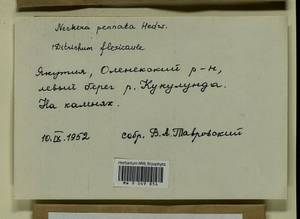 Neckera pennata Hedw.
Ditrichum flexicaule
Якутия, Оленекский р-н,
левый берег р. Кукулунда.
На камнях.
10.IX.1952 собр. В.А. Тавровский
Herbarium MW, Bryophyta